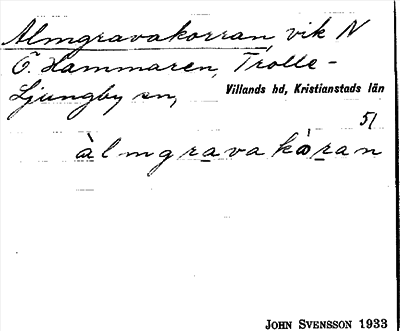 Almgravakorran, vik N
Ö. Hammaren, Trolle-
Ljungby sn, Villands hd, Kristianstads län
51
àlmgrava kòran
JOHN SVENSSON 1933